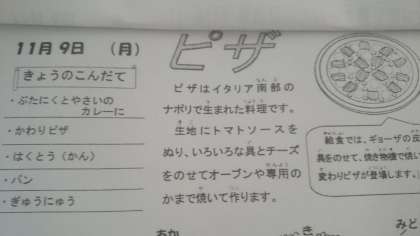 11月9日 (月)
きょうのこんだて
・ぶたにくとやさいの
カレーに
・かわりピザ
・はくとう（かん）
・パン
・ぎゅうにゅう
ピザ
ピザはイタリア南部の
ナポリで生まれた料理です。
生地にトマトソースを
ぬり、いろいろな具とチーズ
をのせてオーブンや専用の
かまで焼いて作ります。
給食では、ギョーザの皮
具をのせて、焼き物機で焼い
変わりピザが登場します。
あか
き
みど